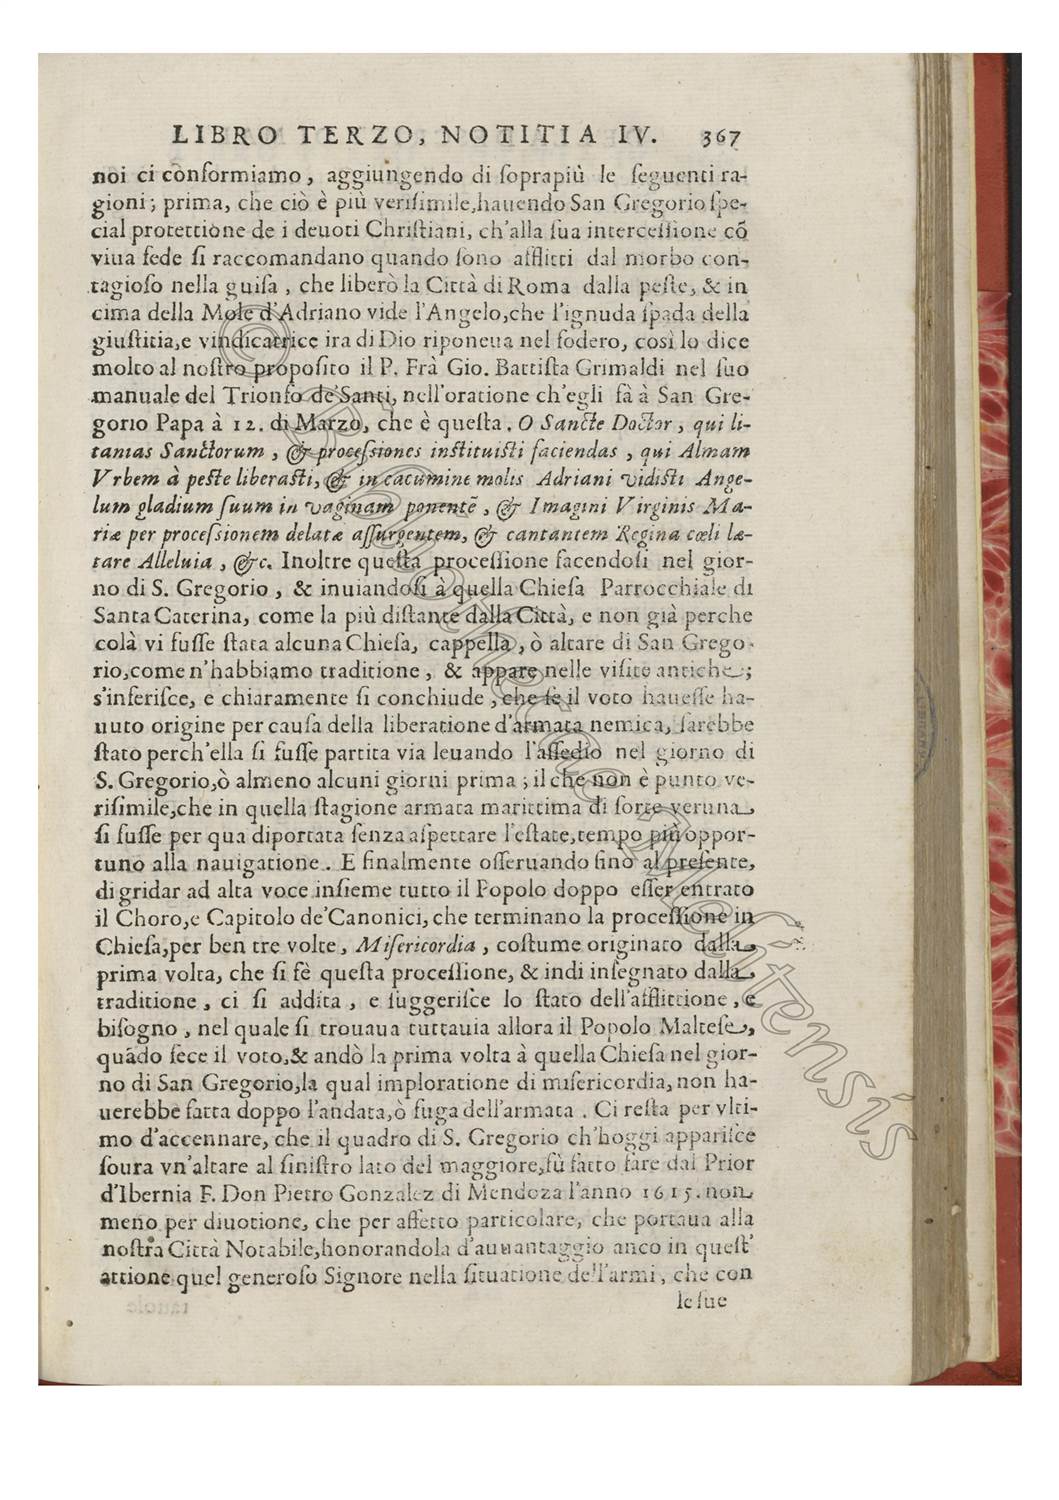 LIBRO TERZO, NOTITIA IV. 367
noi ci conformiamo, aggiungendo di ſoprapiù le ſeguenti ra-
gioni; prima, che ciò è più veriſimile, hauendo San Gregorio ſpe-
cial protettione de i deuoti Chriſtiani, ch'alla ſua interceſſione cõ
viua fede ſi raccomandano quando ſono afflitti dal morbo con-
tagioſo nella guiſa, che liberò la Città di Roma dalla peſte, & in
cima della Mole d'Adriano vide l'Angelo, che l'ignuda ſpada della
giuſtitia, e vindicatrice ira di Dio riponeua nel fodero, così lo dice
molto al noſtro propoſito il P. Frà Gio. Battiſta Grimaldi nel ſuo
manuale del Trionfo de'Santi, nell'oratione ch'egli fà à San Gre-
gorio Papa à 12. di Marzo, che è queſta. O Sancte Doctor, qui li-
tanias Sanctorum, & proceſsiones inſtituiſti faciendas, qui Almam
Vrbem à peſte liberaſti, & in cacumine molis Adriani vidiſti Ange-
lum gladium ſuum in vaginam ponentẽ, & Imagini Virginis Ma-
riæ per proceſsionem delatæ aſſurgentem, & cantantem Regina cœli læ-
tare Alleluia, &c. Inoltre queſta proceſſione facendoſi nel gior-
no di S. Gregorio, & inuiandoſi à quella Chieſa Parrocchiale di
Santa Caterina, come la più diſtante dalla Città, e non già perche
colà vi fuſſe ſtata alcuna Chieſa, cappella, ò altare di San Grego-
rio, come n'habbiamo traditione, & appare nelle viſite antiche;
s'inferiſce, e chiaramente ſi conchiude, che ſe il voto haueſſe ha-
uuto origine per cauſa della liberatione d'armata nemica, ſarebbe
ſtato perch'ella ſi fuſſe partita via leuando l'aſſedio nel giorno di
S. Gregorio, ò almeno alcuni giorni prima; il che non è punto ve-
riſimile, che in quella ſtagione armata marittima di ſorte veruna
ſi fuſſe per qua diportata ſenza aſpettare l'eſtate, tempo più oppor-
tuno alla nauigatione. E finalmente oſſeruando fino al preſente,
di gridar ad alta voce inſieme tutto il Popolo doppo eſſer entrato
il Choro, e Capitolo de'Canonici, che terminano la proceſſione in
Chieſa, per ben tre volte, Miſericordia, coſtume originato dalla
prima volta, che ſi fè queſta proceſſione, & indi inſegnato dalla
traditione, ci ſi addita, e ſuggeriſce lo ſtato dell'afflittione, e
biſogno, nel quale ſi trouaua tuttauia allora il Popolo Malteſe,
quãdo fece il voto, & andò la prima volta à quella Chieſa nel gior-
no di San Gregorio, la qual imploratione di miſericordia, non ha-
uerebbe fatta doppo l'andata, ò fuga dell'armata. Ci reſta per vlti-
mo d'accennare, che il quadro di S. Gregorio ch'hoggi appariſce
ſoura vn'altare al ſiniſtro lato del maggiore, fù fatto fare dal Prior
d'Ibernia F. Don Pietro Gonzalez di Mendoza l'anno 1615. non
meno per diuotione, che per affetto particolare, che portaua alla
noſtra Città Notabile, honorandola d'auuantaggio anco in queſt'
attione quel generoſo Signore nella ſituatione dell'armi, che con
le ſue